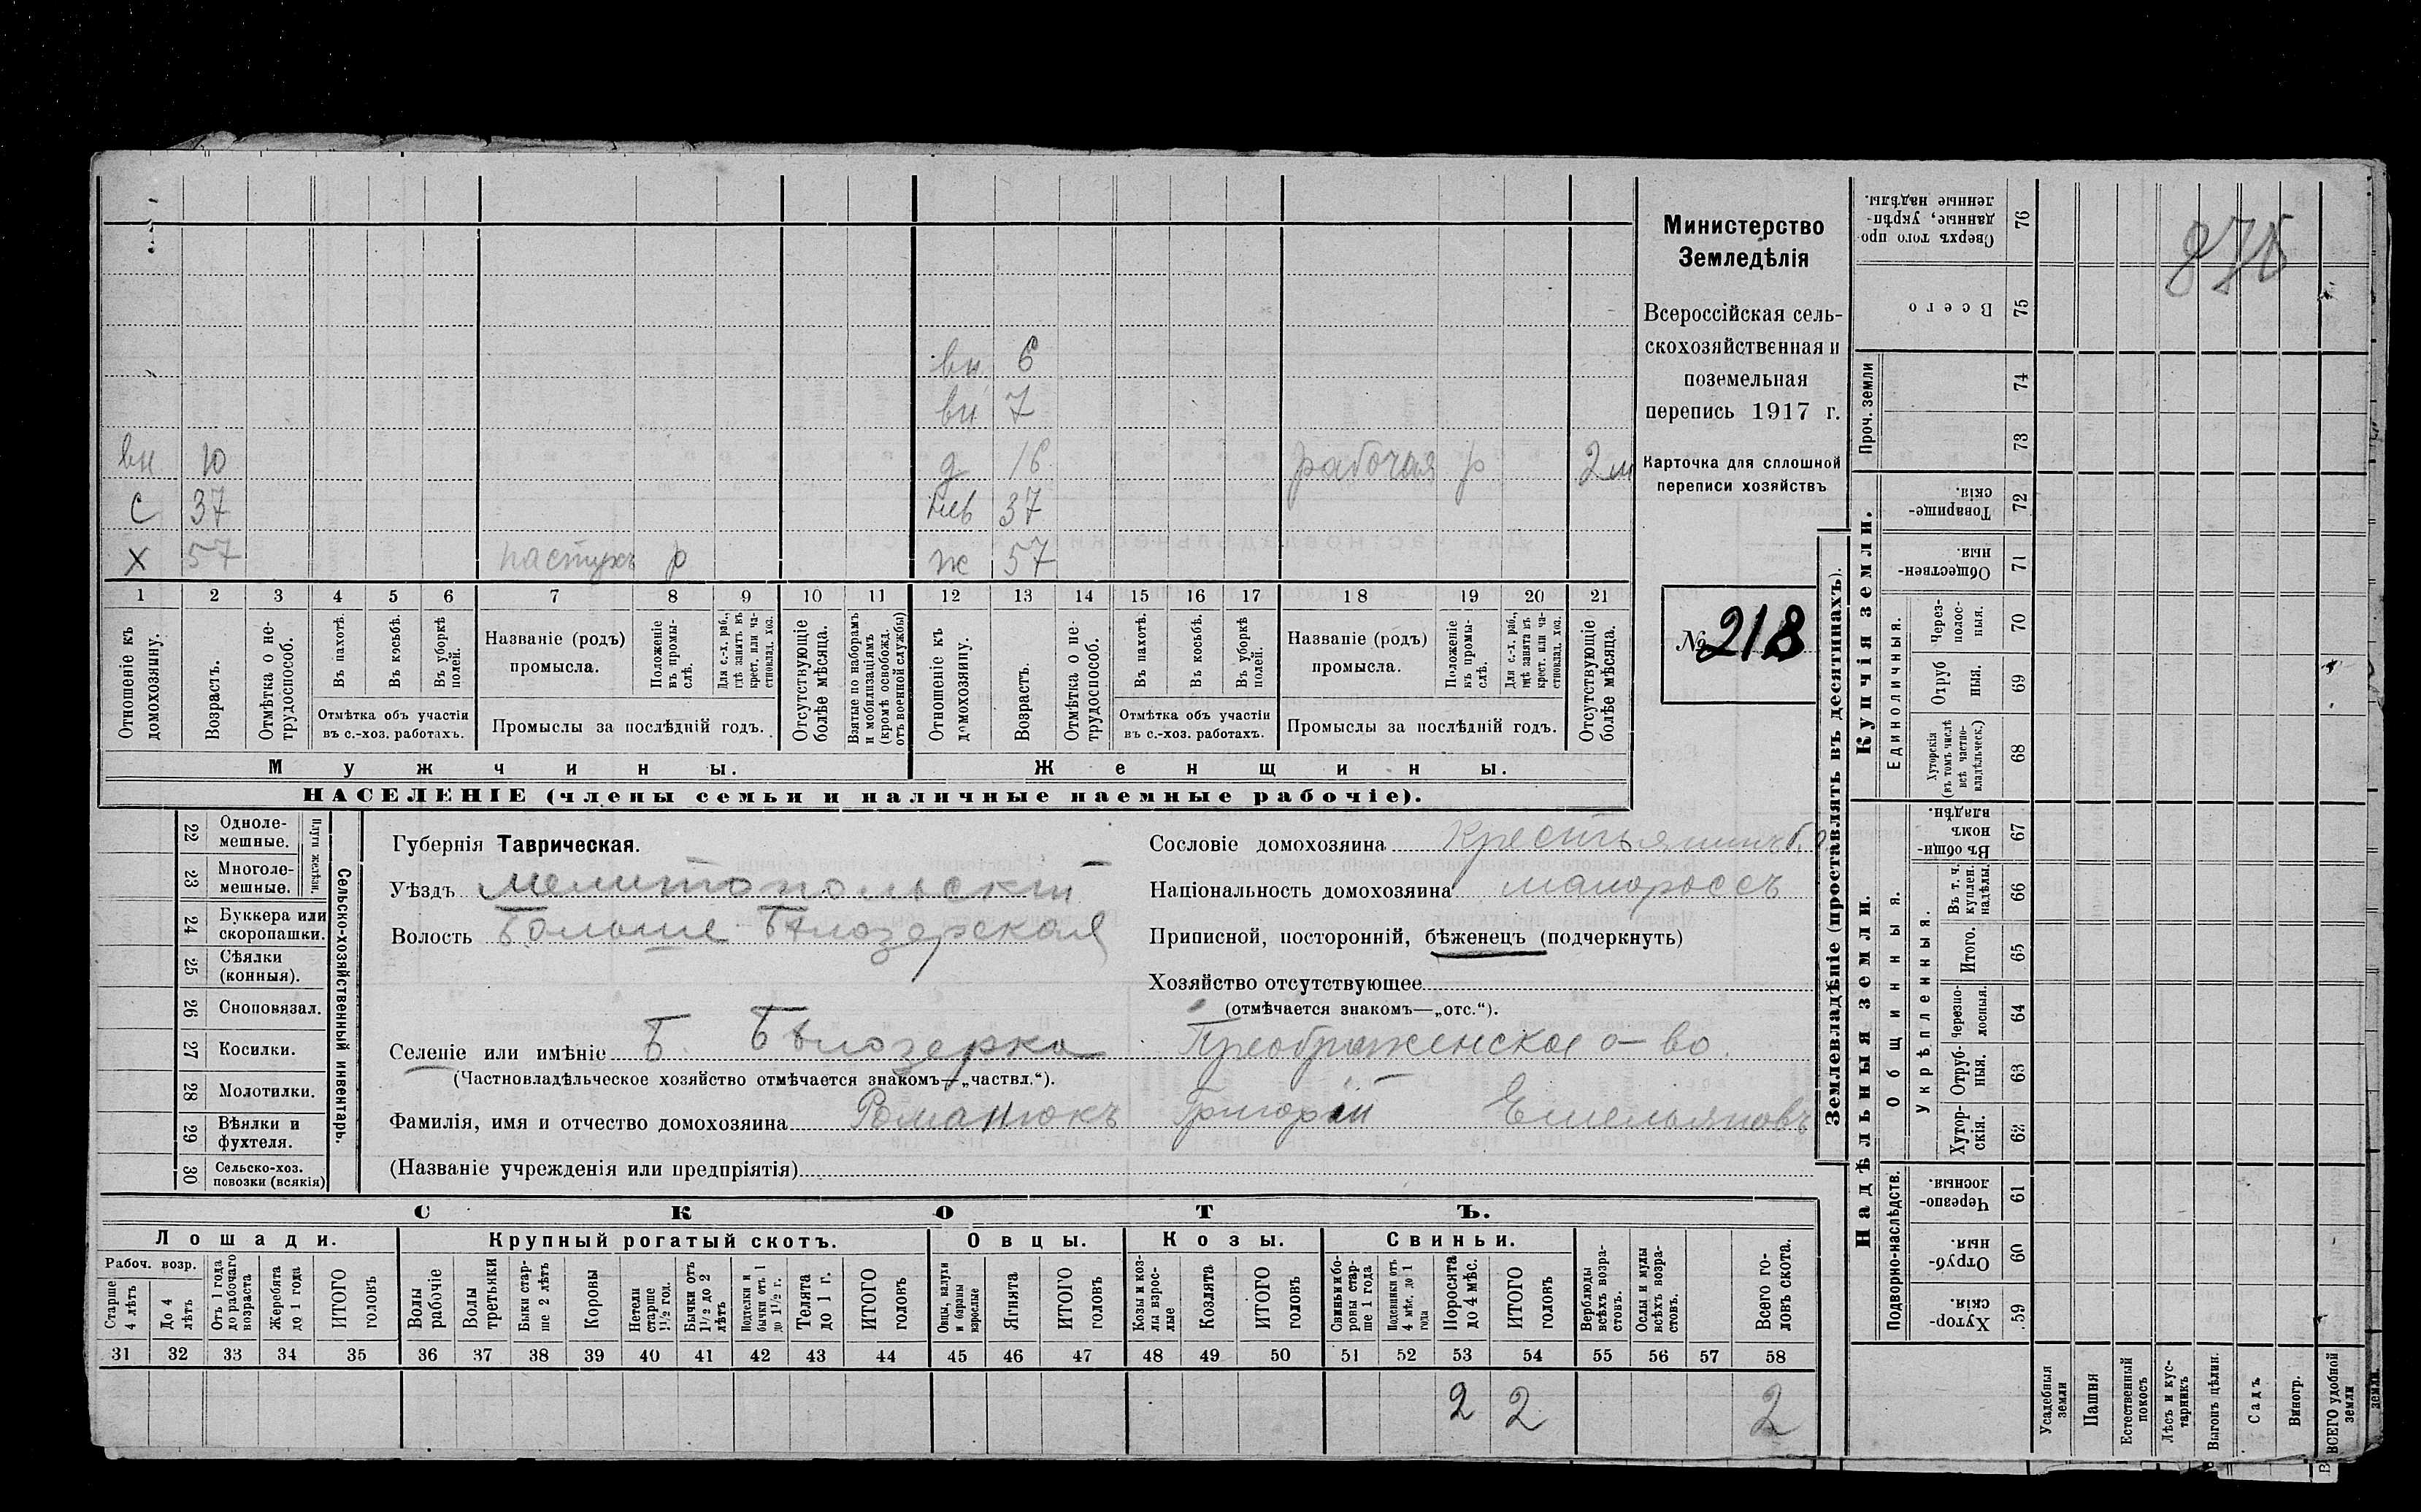 вн. 6
вн 7
вн 10 д 16 рабочая р 2 м
с 37 нев 37
х 57 пастухъ р ж 57
1 2 3 4 5 6 7 8 9 10 11 12 13 14 15 16 17 18 19 20 21
Отношеніе къ домохозяину.
Возрастъ.
Отмѣтка о нетрудоспособ.
Въ пахотѣ.
Въ косьбѣ.
Въ уборкѣ полей.
Отмѣтка объ участіи
въ с.-хоз. работахъ.
Названіе (родъ)
промысла.
Положеніе въ промыслѣ.
Для с.-х. раб., гдѣ занятъ въ крест. или частновлад. хоз.
Промыслы за послѣдній годъ.
Отсутствующіе болѣе мѣсяца.
Взятые по наборамъ и мобилизаціямъ (кромѣ освобожд. отъ военной службы)
Отношеніе къ домохозяину.
Возрастъ.
Отмѣтка о нетрудоспособ.
Въ пахотѣ.
Въ косьбѣ.
Въ уборкѣ полей.
Отмѣтка объ участіи
въ с.-хоз. работахъ.
Названіе (родъ)
промысла.
Положеніе въ промыслѣ.
Для с.-х. раб., гдѣ занята въ крест. или частновлад. хоз.
Промыслы за послѣдній годъ.
Отсутствующіе болѣе мѣсяца.
Мужчины. Женщины.
НАСЕЛЕНІЕ (члены семьи и наличные наемные рабочіе).
Министерство
Земледѣлія
Всероссійская сель-
скохозяйственная и
поземельная
перепись 1917 г.
Карточка для сплошной
переписи хозяйствъ
№ 218
Сельско-хозяйственный инвентарь.
22 Одноле-
мешные.
23 Многоле-
мешные.
24 Буккера или
скоропашки.
25 Сѣялки
(конныя).
26 Сноповязал.
27 Косилки.
28 Молотилки.
29 Вѣялки и
фухтеля.
30 Сельско-хоз.
повозки (всякія)
Губернія Таврическая.
Уѣздъ Мелитопольскій
Волость Больше Бѣлозерская
Селеніе или имѣніе Б. Бѣлозерка Преображенское о-во.
(Частновладѣльческое хозяйство отмѣчается знакомъ—„частвл.“).
Фамилія, имя и отчество домохозяина Романюкъ Григорій Емельяновъ
(Названіе учрежденія или предпріятія)
Сословіе домохозяина Крестьянинъ
Національность домохозяина малороссъ
Приписной, посторонній, бѣженецъ (подчеркнуть)
Хозяйство отсутствующее
(отмѣчается знакомъ—„отс.“).
СКОТЪ.
Лошади. Крупный рогатый скотъ. Овцы. Козы. Свиньи.
Рабоч. возр.
Старше 4 лѣтъ
До 4 лѣтъ
Отъ 1 года до рабочаго возраста
Жеребята до 1 года
ИТОГО головъ
Волы рабочіе
Волы третьяки
Быки старше 2 лѣтъ
Коровы
Нетели старше 1½ год.
Бычки отъ 1½ до 2 лѣтъ
Подтелки и бычки отъ 1 до 1½ г.
Телята до 1 г.
ИТОГО головъ
Овцы, валухи и бараны взрослые
Ягнята
ИТОГО головъ
Козы и козлы взрослые
Козлята
ИТОГО головъ
Свиньи и боровы старше 1 года
Подсвинки отъ 4 мѣс. до 1 года
Поросята до 4 мѣс.
ИТОГО головъ
Верблюды всѣхъ возрастовъ.
Ослы и мулы всѣхъ возрастовъ.
Всего головъ скота.
31 32 33 34 35 36 37 38 39 40 41 42 43 44 45 46 47 48 49 50 51 52 53 54 55 56 57 58
2 2 2
Землевладѣніе (проставлять въ десятинахъ).
Надѣльныя земли. Купчія земли.
Проч. земли
Общинныя.
Укрѣпленныя.
Единоличныя.
Подворно-наслѣдств.
Сверхъ того проданные, укрѣпленные надѣлы. 76
Всего 75
74
73
Товарищескія. 72
Общественныя. 71
Черезполосныя. 70
Отрубныя. 69
Хуторскія (въ томъ числѣ всѣ частновладѣльческ.) 68
Въ общинномъ владѣн. 67
Въ т. ч. куплен. надѣлы. 66
Итого. 65
Черезполосныя. 64
Отрубныя. 63
Хуторскія. 62
Черезполосныя. 61
Отрубныя. 60
Хуторскія. 59
Усадебныя земли
Пашня
Естественный покосъ
Лѣсъ и кустарникъ
Выгонъ цѣлин.
Садъ
Виногр.
ВСЕГО удобной земли